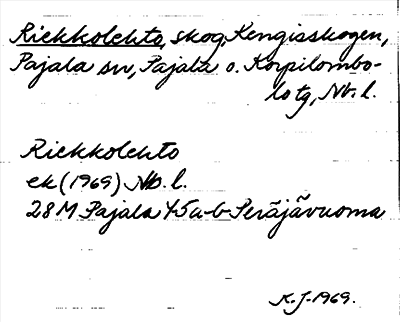 Riekkolehto, skog, Kengisskogen,
Pajala sn, Pajala o. Korpilombo-
lo tg, Nb. l.
Riekkolehto
ek (1969) Nb. l.
28M Pajala 45a-b Peräjävuoma
K. J. 1969.